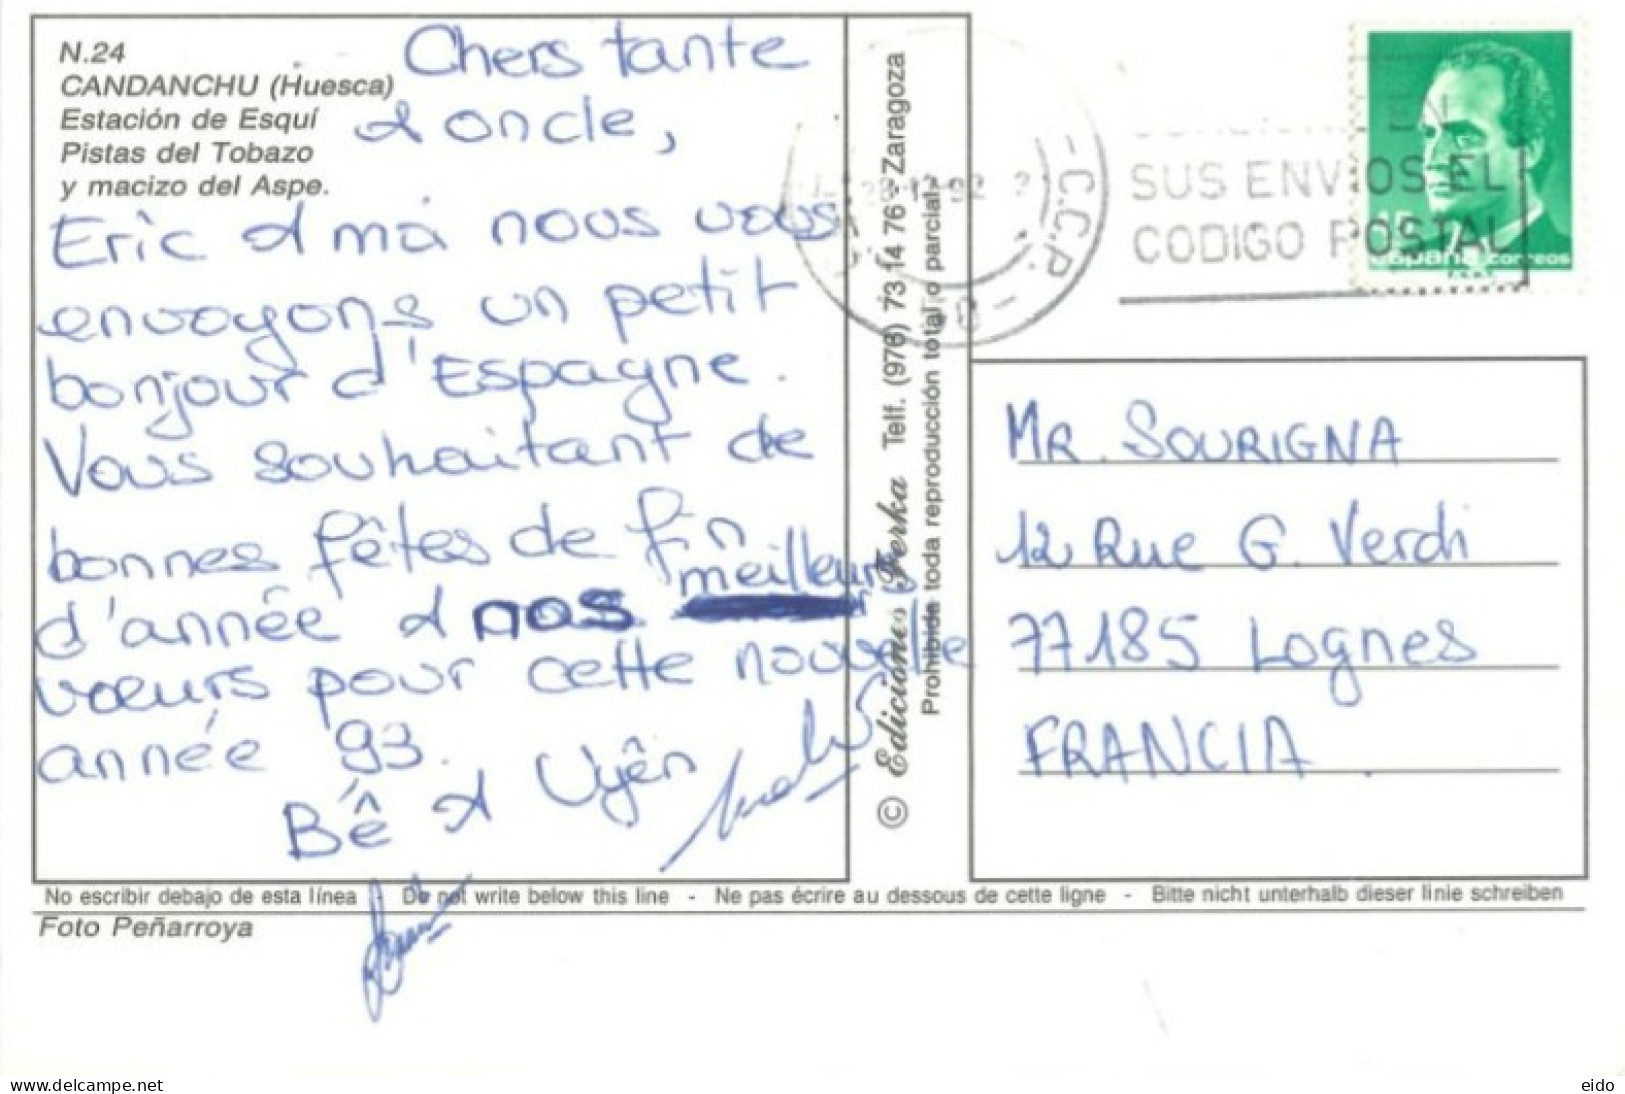 N.24
CANDANCHU (Huesca)
Estación de Esquí
Pistas del Tobazo
y macizo del Aspe.
Chers tante
& oncle,
Eric & moi nous vous
envoyons un petit
bonjour d'Espagne.
Vous souhaitant de
bonnes fêtes de fin
d'année & nos meilleurs
vœurs pour cette nouvelle
année 93.
Bê & Uyên
© Ediciones Ferka Telf. (976) 73 14 76 - Zaragoza
Prohibida toda reproducción total o parcial.
C.C.P.
EN
SUS ENVIOS EL
CODIGO POSTAL
15
españa correos
MR. SOURIGNA
12 Rue G. Verdi
77185 Lognes
FRANCIA.
No escribir debajo de esta línea - Do not write below this line - Ne pas écrire au dessous de cette ligne - Bitte nicht unterhalb dieser linie schreiben
Foto Peñarroya
www.delcampe.net
eido